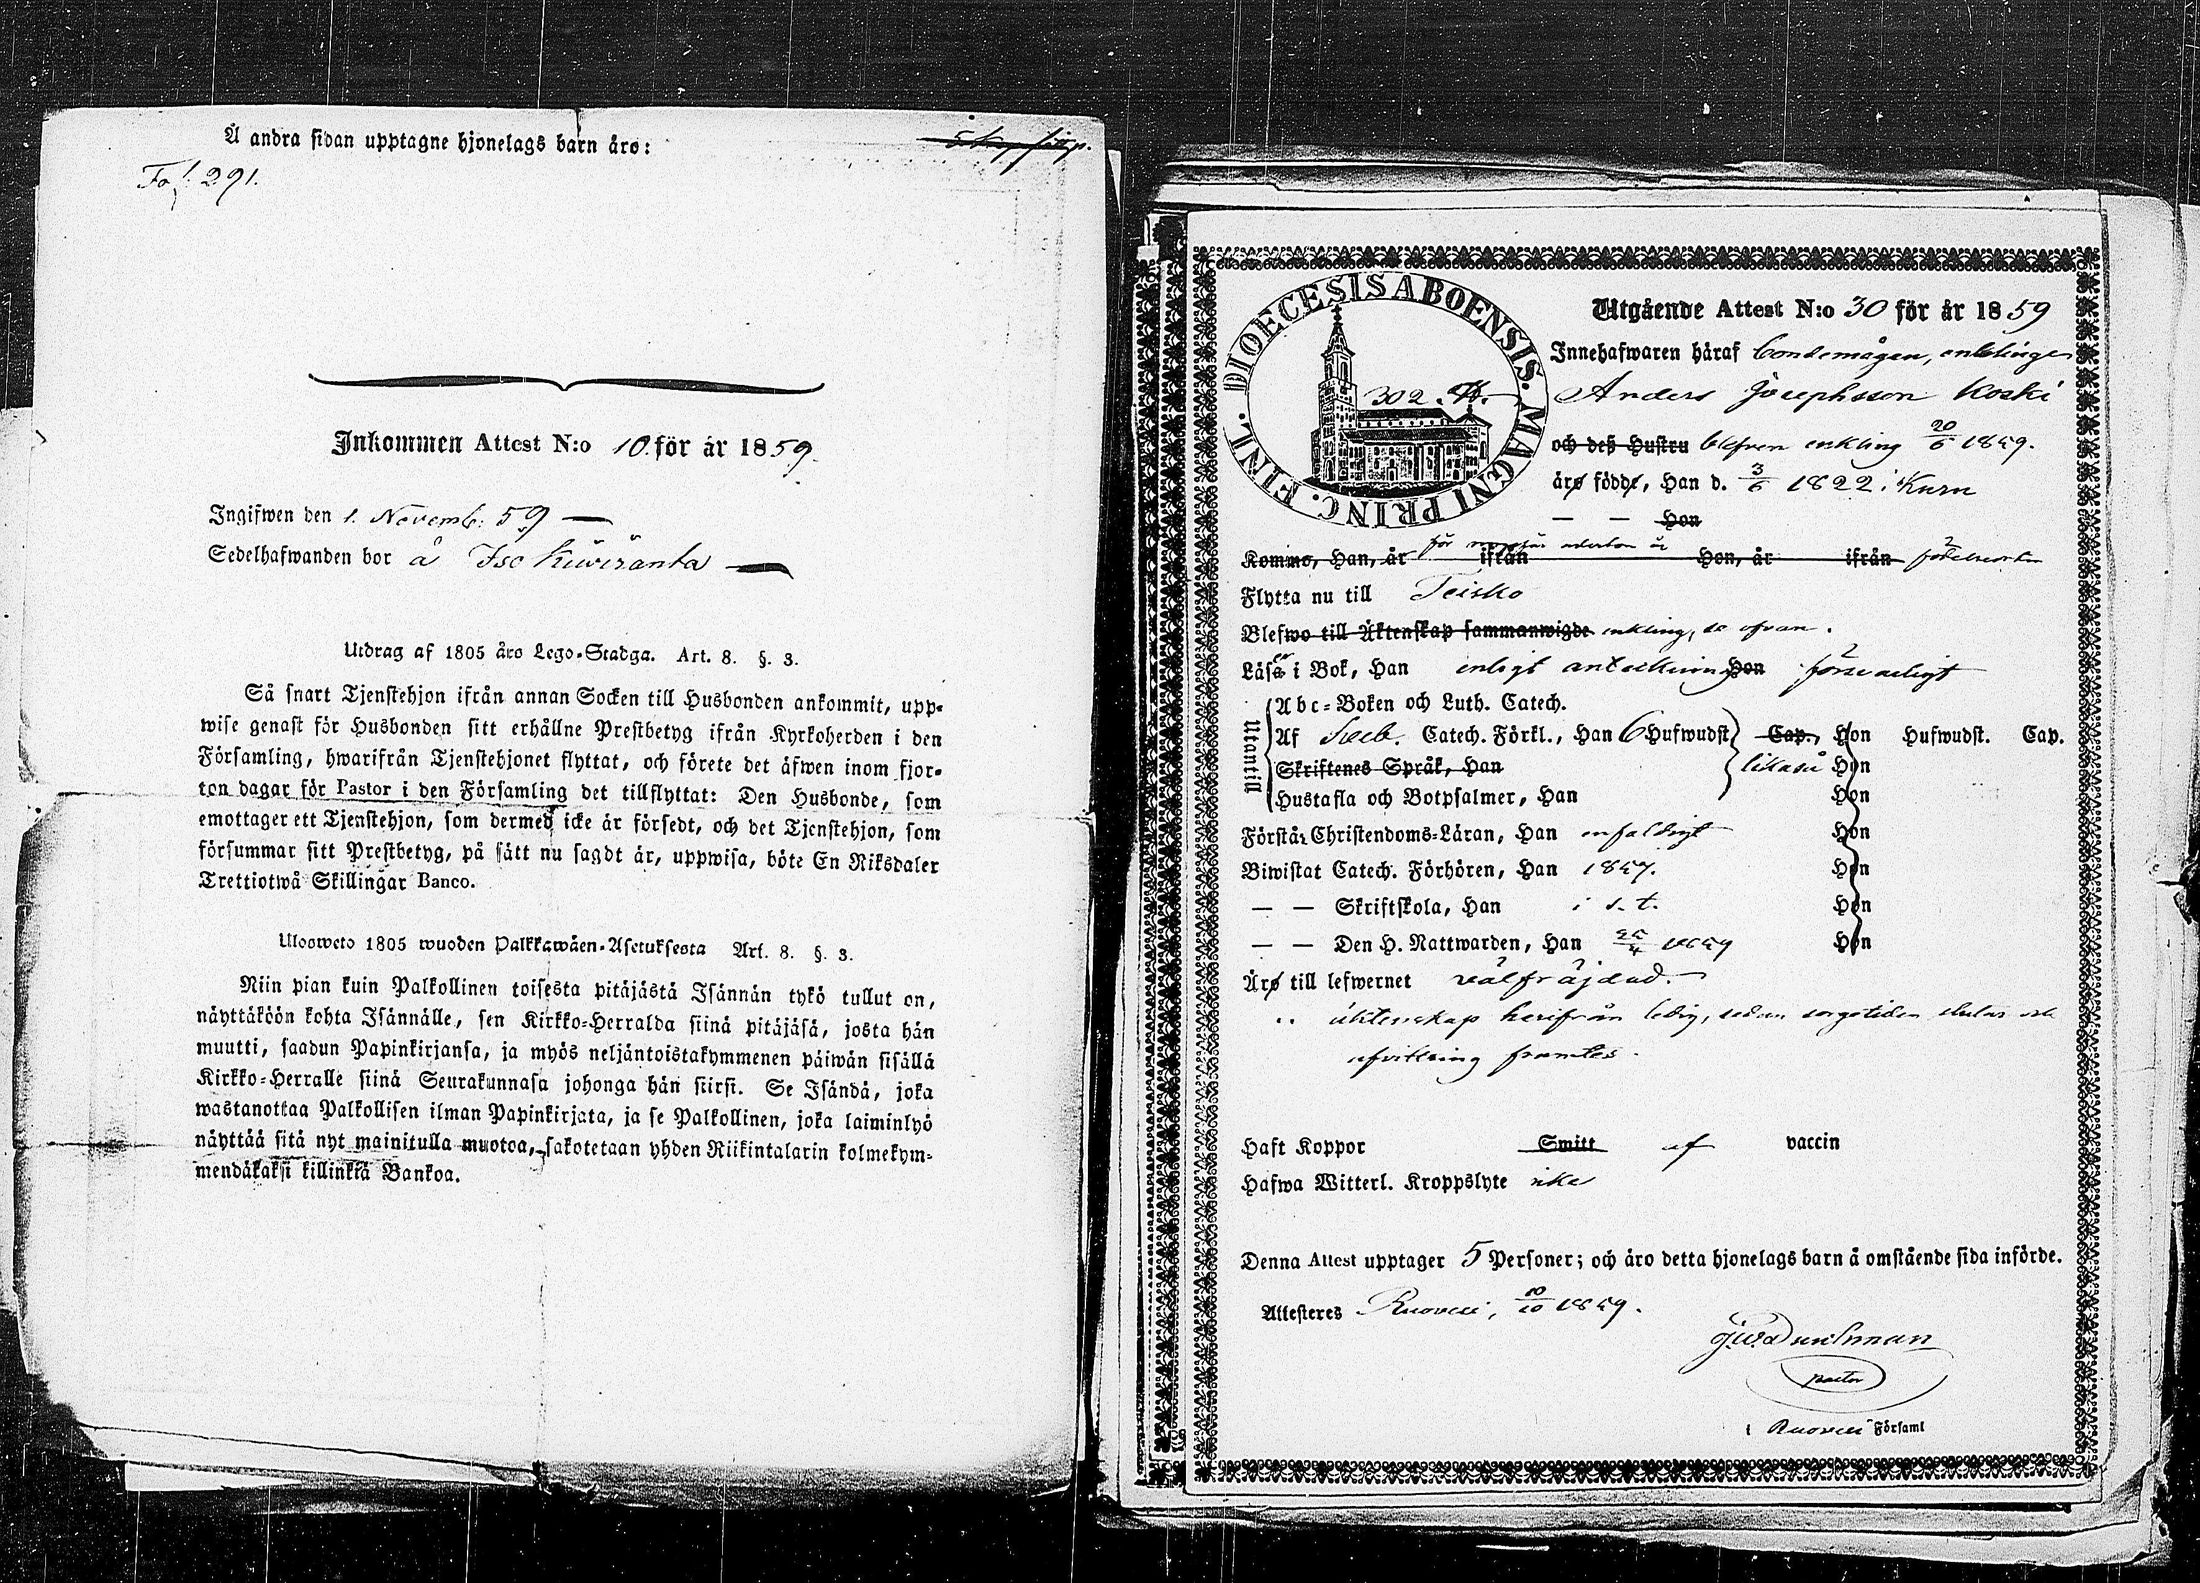 Å andra sidan upptagne hjonelags barn äro:
Fol. 291.
Inkommen Attest N:o 10 för år 1859.
Ingifwen den 1. Novemb. 59 —
Sedelhafwanden bor å Iso Kiwiranta —
Utdrag af 1805 års Lego-Stadga. Art. 8. §. 3.
Så snart Tjenstehjon ifrån annan Socken till Husbonden ankommit, upp-
wise genast för Husbonden sitt erhållne Prestbetyg ifrån Kyrkoherden i den
Församling, hwarifrån Tjenstehjonet flyttat, och förete det äfwen inom fjor-
ton dagar för Pastor i den Församling det tillflyttat: Den Husbonde, som
emottager ett Tjenstehjon, som dermed icke är försedt, och det Tjenstehjon, som
försummar sitt Prestbetyg, på sätt nu sagdt är, uppwisa, böte En Riksdaler
Trettiotwå Skillingar Banco.
Ulosweto 1805 wuoden Palkkawäen-Asetuksesta Art. 8. §. 3.
Niin pian kuin Palkollinen toisesta pitäjästä Isännän tykö tullut on,
näyttäköön kohta Isännälle, sen Kirkko-Herralda siinä pitäjäsä, josta hän
muutti, saadun Papinkirjansa, ja myös neljäntoistakymmenen päiwän sisällä
Kirkko-Herralle siinä Seurakunnasa johonga hän siirsi. Se Isändä, joka
wastanottaa Palkollisen ilman Papinkirjata, ja se Palkollinen, joka laiminlyö
näyttää sitä nyt mainitulla muotoa, sakotetaan yhden Riikintalarin kolmekym-
mendäkaksi killinkiä Bankoa.
DIOECESIS ABOENSIS. MAGNI PRINC. FINL.
302.
Utgående Attest N:o 30 för år 1859
Innehafwaren häraf Bondemågen, enklingen
Anders Josephsson Koski
och deß Hustru blefven enkling 20/6 1859.
äro födde, Han d. 3/6 1822 i Kuru
— — Hon
Kommo, Han, år ifrån Hon, år ifrån födelseorten
Flytta nu till Teisko
Blefwo till Äktenskap sammanwigde enkling, se ofvan.
Läsa i Bok, Han enligt anteckning Hon försvarligt
Utantill
Abc-Boken och Luth. Catech.
Af Sveb. Catech. Förkl., Han 6 Hufwudst. Cap., Hon Hufwudst. Cap.
Skriftenes Språk, Han likaså Hon
Hustafla och Botpsalmer, Han Hon
Förstår Christendoms-Läran, Han enfaldigt Hon
Biwistat Catech. Förhören, Han 1857. Hon
— — Skriftskola, Han i s. t. Hon
— — Den H. Nattwarden, Han 25/4 1859 Hon
Äro till lefwernet välfräjdad.
" äktenskap härifrån ledig, sedan sorgetiden slutas och
afvittring framtes.
Haft Koppor Smitt af vaccin
Hafwa Witterl. Kroppslyte icke
Denna Attest upptager 5 Personer; och äro detta hjonelags barn å omstående sida införde.
Attesteres Ruovesi, 10/10 1859.
pastor
i Ruovesi Församl